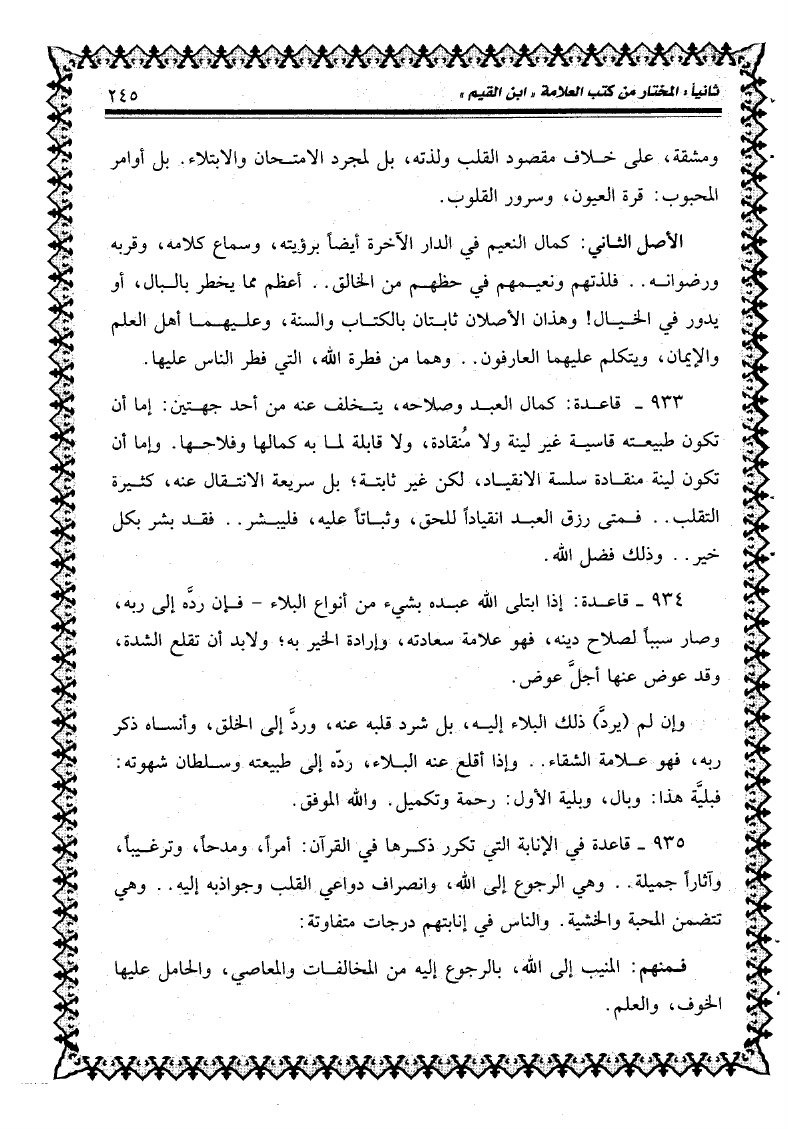 ثانياً : المختار من كتب العلامة « ابن القيم »
٢٤٥
ومشقة، على خلاف مقصود القلب ولذته، بل لمجرد الامتحان والابتلاء. بل أوامر
المحبوب: قرة العيون، وسرور القلوب.
الأصل الثاني: كمال النعيم في الدار الآخرة أيضاً برؤيته، وسماع كلامه، وقربه
ورضوانه.. فلذتهم ونعيمهم في حظهم من الخالق.. أعظم مما يخطر بالبال، أو
يدور في الخيال! وهذان الأصلان ثابتان بالكتاب والسنة، وعليهما أهل العلم
والإيمان، ويتكلم عليهما العارفون.. وهما من فطرة الله، التي فطر الناس عليها.
٩٣٣ ـ قاعدة: كمال العبد وصلاحه، يتخلف عنه من أحد جهتين: إما أن
تكون طبيعته قاسية غير لينة ولا مُنقادة، ولا قابلة لما به كمالها وفلاحها. وإما أن
تكون لينة منقادة سلسة الانقياد، لكن غير ثابتة؛ بل سريعة الانتقال عنه، كثيرة
التقلب.. فمتى رزق العبد انقياداً للحق، وثباتاً عليه، فليبشر.. فقد بشر بكل
خير.. وذلك فضل الله.
٩٣٤ ـ قاعدة: إذا ابتلى الله عبده بشيء من أنواع البلاء – فإن ردَّه إلى ربه،
وصار سبباً لصلاح دينه، فهو علامة سعادته، وإرادة الخير به؛ ولابد أن تقلع الشدة،
وقد عوض عنها أجلَّ عوض.
وإن لم (يردَّ) ذلك البلاء إليه، بل شرد قلبه عنه، وردَّ إلى الخلق، وأنساه ذكر
ربه، فهو علامة الشقاء.. وإذا أقلع عنه البلاء، ردّه إلى طبيعته وسلطان شهوته:
فبليَّة هذا: وبال، وبلية الأول: رحمة وتكميل. والله الموفق.
٩٣٥ ـ قاعدة في الإنابة التي تكرر ذكرها في القرآن: أمراً، ومدحاً، وترغيباً،
وآثاراً جميلة.. وهي الرجوع إلى الله، وانصراف دواعي القلب وجواذبه إليه.. وهي
تتضمن المحبة والخشية. والناس في إنابتهم درجات متفاوتة:
فمنهم: المنيب إلى الله، بالرجوع إليه من المخالفات والمعاصي، والحامل عليها
الخوف، والعلم.